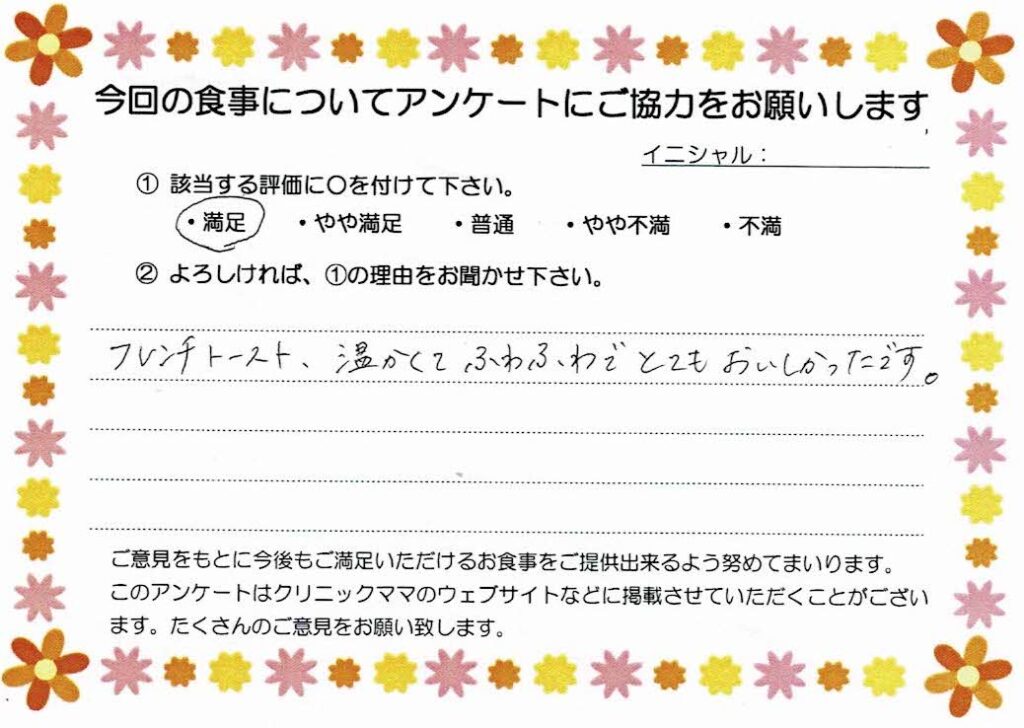 今回の食事についてアンケートにご協力をお願いします
イニシャル：
① 該当する評価に〇を付けて下さい。
・満足 ・やや満足 ・普通 ・やや不満 ・不満
② よろしければ、①の理由をお聞かせ下さい。
フレンチトースト、温かくてふわふわでとてもおいしかったです。
ご意見をもとに今後もご満足いただけるお食事をご提供出来るよう努めてまいります。
このアンケートはクリニックママのウェブサイトなどに掲載させていただくことがござい
ます。たくさんのご意見をお願い致します。